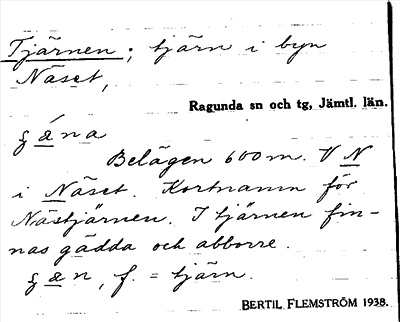 Tjärnen; tjärn i byn
Näset,
Ragunda sn och tg, Jämtl. län.
ꞔäna
Belägen 600 m. V N
i Näset. Kortnamn för
Nästjärnen. I tjärnen fin-
nas gädda och abborre.
ꞔän, f. = tjärn.
BERTIL FLEMSTRÖM 1938.